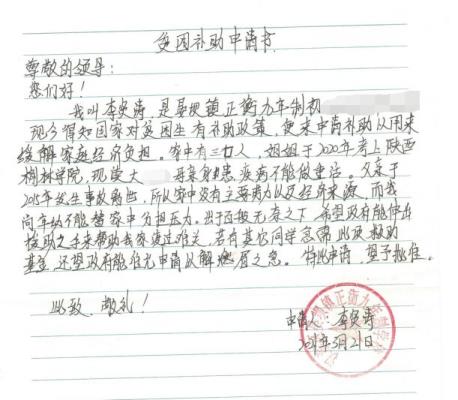 贫困补助申请书
尊敬的领导：
您们好！
我叫李奕涛 是晏坝镇正衡九年制初
现今得知国家对贫困生有补助政策，便来申请补助以用来
缓解家庭经济负担。家中有三口人，姐姐于2020年考上陕西
榆林学院，现读大 母亲身患疾病不能做重活。父亲于
2015年发生事故离世，所以家中没有主要劳力以及经济来源，而我
尚年幼不能替家中分担压力。出于百般无奈之下，希望政府能伸出
援助之手来帮助我家渡过难关，若有其它同学急需此项救助
基金，还望政府能准允申请以解燃眉之急。特此申请，望予批准。
此致、敬礼！
申请人：李奕涛
2021年3月21日
镇正衡九年制学校